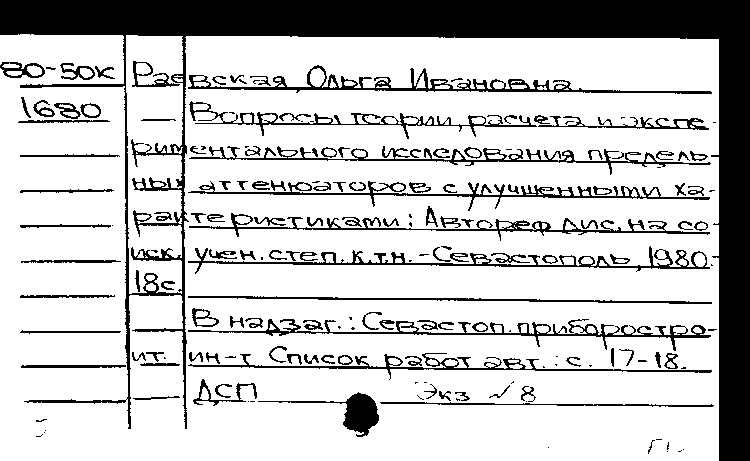 80-50к Раевская, Ольга Ивановна.
1680 — Вопросы теории, расчета и экспе-
риментального исследования предель-
ных аттенюаторов с улучшенными ха-
рактеристиками: Автореф дис. на со-
иск. учен. степ. к.т.н. - Севастополь, 1980.-
18с.
В надзаг.: Севастоп. приборостро-
ит. ин-т Список работ авт.: с. 17-18.
ДСП Экз № 8